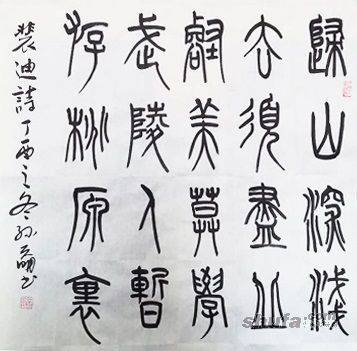 歸山深淺
去須盡丘
壑美莫學
武陵人暫
游桃原裏
裴迪詩丁酉之冬孫書
shufa